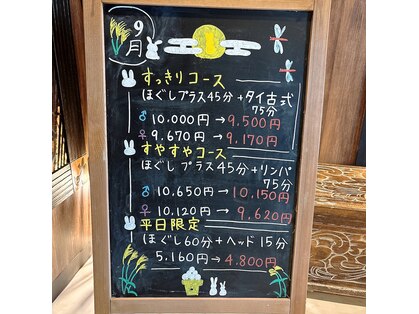 9月
すっきりコース
ほぐしプラス45分+タイ古式
75分
♂ 10.000円→9,500円
♀ 9.670円→9,170円
すやすやコース
ほぐしプラス45分+リンパ
75分
♂ 10,650円→10,150円
♀ 10,120円→9,620円
平日限定
ほぐし60分+ヘッド15分
5.160円→4.800円